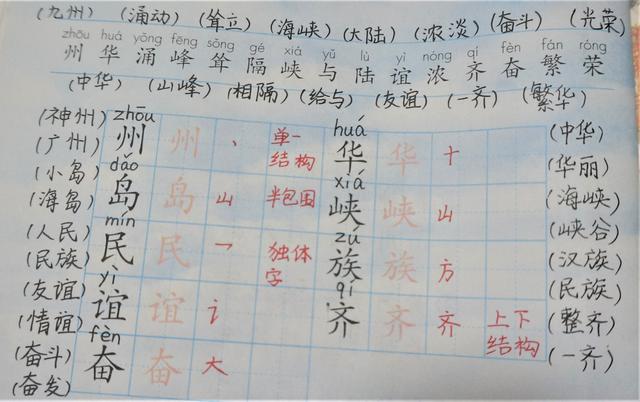 (九州) (涌动) (耸立) (海峡) (大陆) (浓淡) (奋斗) (光荣)
zhōu huá yǒng fēng sǒng gé xiá yǔ lù yì nóng qí fèn fán róng
州 华 涌 峰 耸 隔 峡 与 陆 谊 浓 齐 奋 繁 荣
(中华) (山峰) (相隔) (给与) (友谊) (一齐) (繁华)
(神州) zhōu 州 州 丶 单一结构 huá 华 华 十 (中华)
(广州) (华丽)
(小岛) dǎo 岛 岛 山 半包围 xiá 峡 峡 山 (海峡)
(海岛) (峡谷)
(人民) mín 民 民 乛 独体字 zú 族 族 方 (汉族)
(民族) (民族)
(友谊) yì 谊 谊 讠 qí 齐 齐 齐 上下结构 (整齐)
(情谊) (一齐)
(奋斗) fèn 奋 奋 大
(奋发)